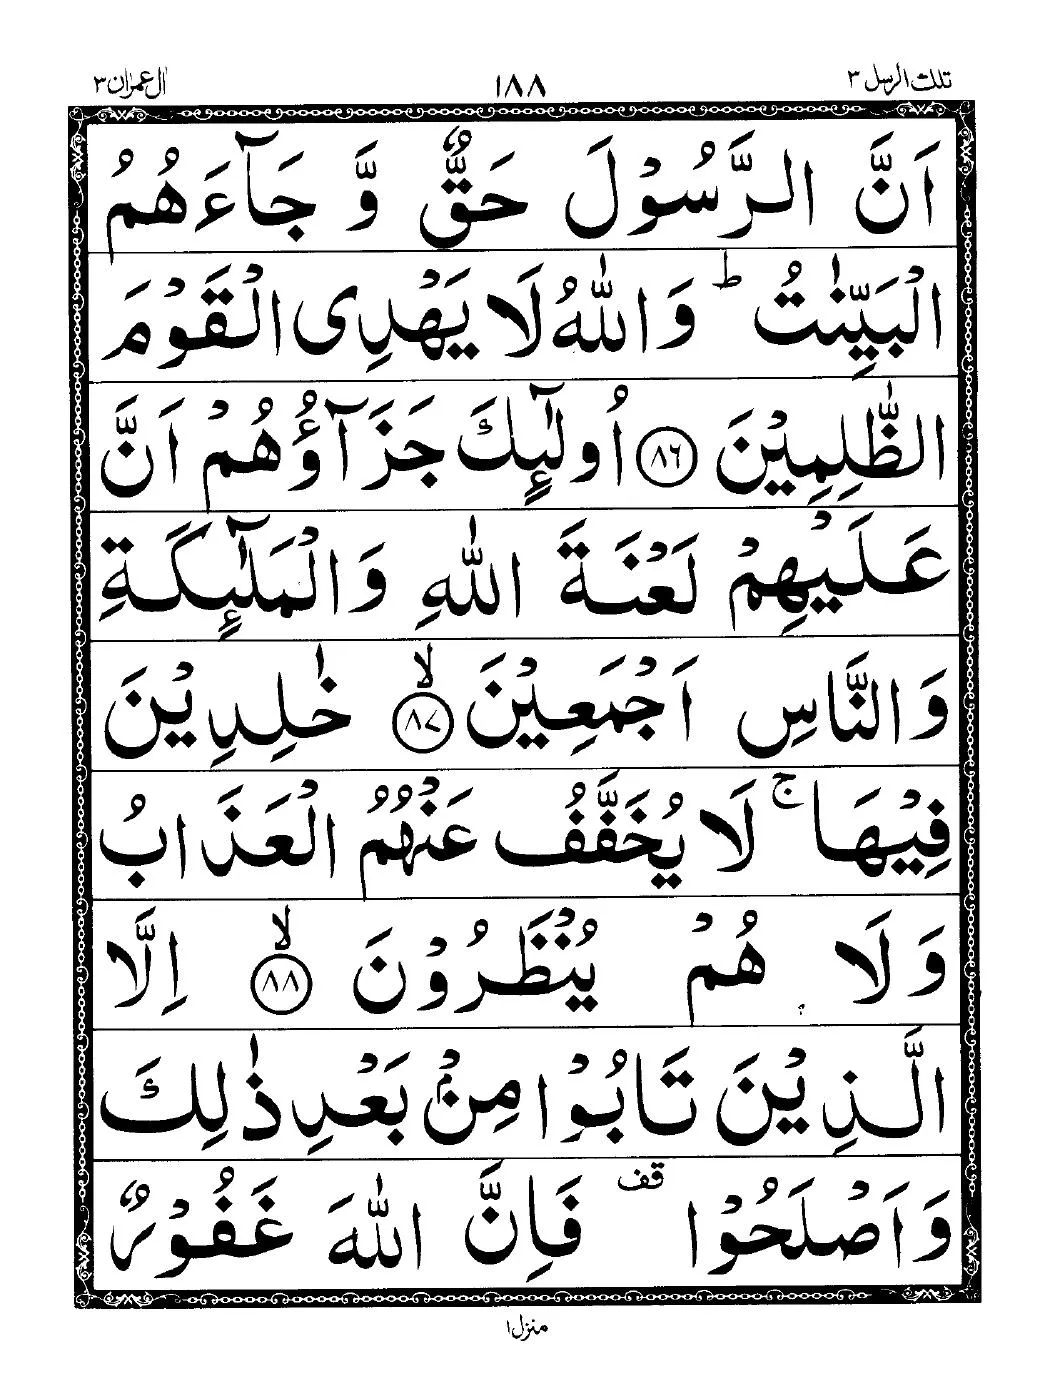 تلك الرسل ٣
١٨٨
اٰل عمرٰن ٣
اَنَّ الرَّسُوْلَ حَقٌّ وَّ جَآءَهُمُ
الْبَيِّنٰتُ ؕ وَاللّٰهُ لَا يَهْدِى الْقَوْمَ
الظّٰلِمِيْنَ ﴿٨٦﴾ اُولٰٓئِكَ جَزَآؤُهُمْ اَنَّ
عَلَيْهِمْ لَعْنَةَ اللّٰهِ وَالْمَلٰٓئِكَةِ
وَالنَّاسِ اَجْمَعِيْنَ ۙ﴿٨٧﴾ خٰلِدِيْنَ
فِيْهَا ۚ لَا يُخَفَّفُ عَنْهُمُ الْعَذَابُ
وَلَا هُمْ يُنْظَرُوْنَ ۙ﴿٨٨﴾ اِلَّا
الَّذِيْنَ تَابُوْا مِنْۢ بَعْدِ ذٰلِكَ
وَاَصْلَحُوْا قف فَاِنَّ اللّٰهَ غَفُوْرٌ
منزل ١